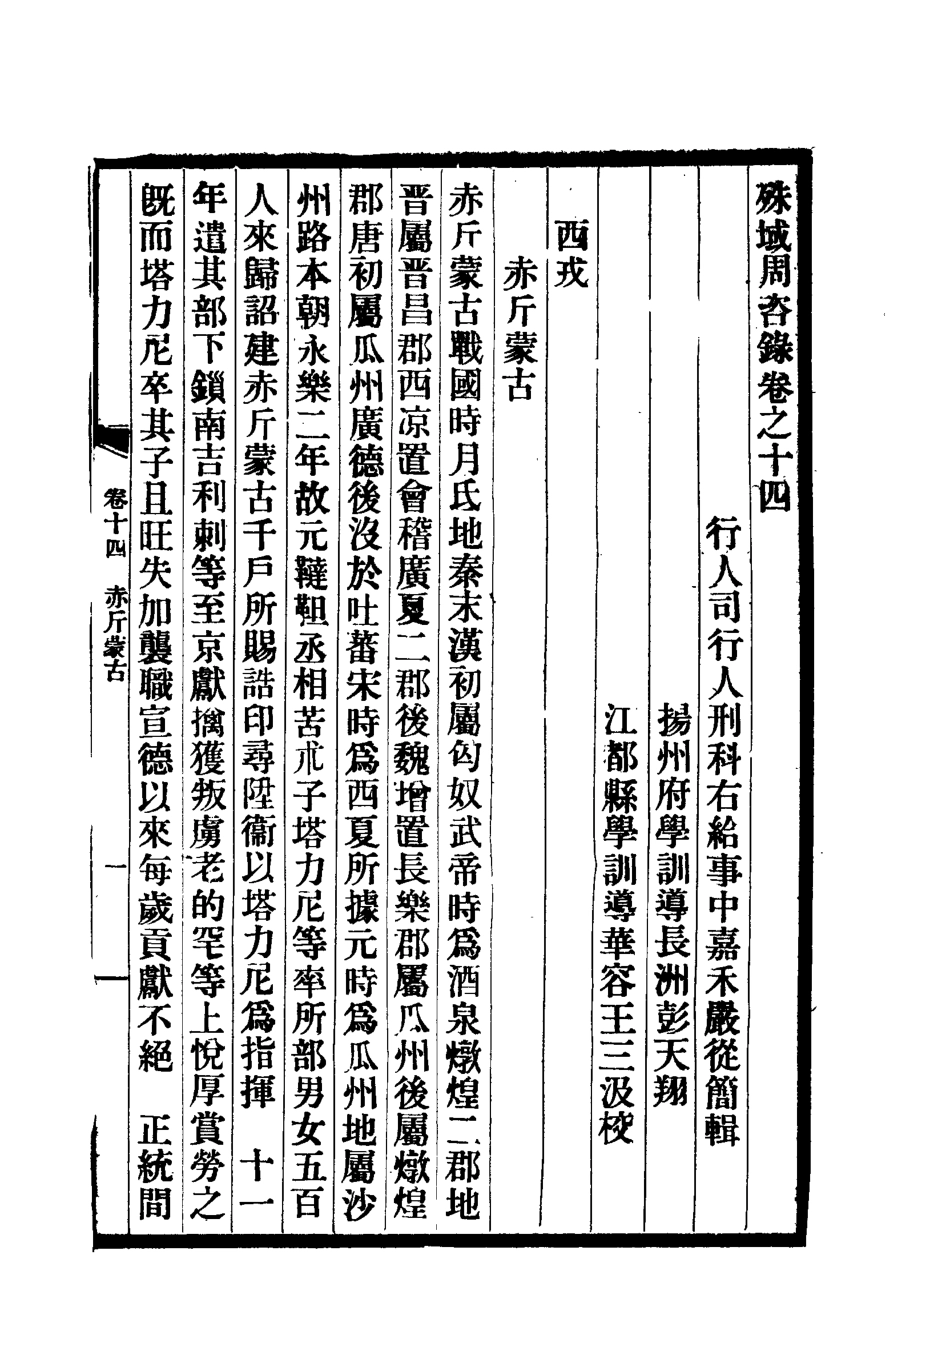 殊域周咨錄卷之十四
行人司行人刑科右給事中嘉禾嚴從簡輯
揚州府學訓導長洲彭天翔
江都縣學訓導華容王三汲校
西戎
赤斤蒙古
赤斤蒙古戰國時月氏地秦末漢初屬匈奴武帝時爲酒泉燉煌二郡地
晉屬晉昌郡西凉置會稽廣夏二郡後魏增置長樂郡屬瓜州後屬燉煌
郡唐初屬瓜州廣德後沒於吐蕃宋時爲西夏所據元時爲瓜州地屬沙
州路本朝永樂二年故元韃靼丞相苦朮子塔力尼等率所部男女五百
人來歸詔建赤斤蒙古千戶所賜誥印尋陞衞以塔力尼爲指揮　十一
年遣其部下鎖南吉利剌等至京獻擒獲叛虜老的罕等上悅厚賞勞之
旣而塔力尼卒其子且旺失加襲職宣德以來每歲貢獻不絕　正統間
卷十四　赤斤蒙古
一